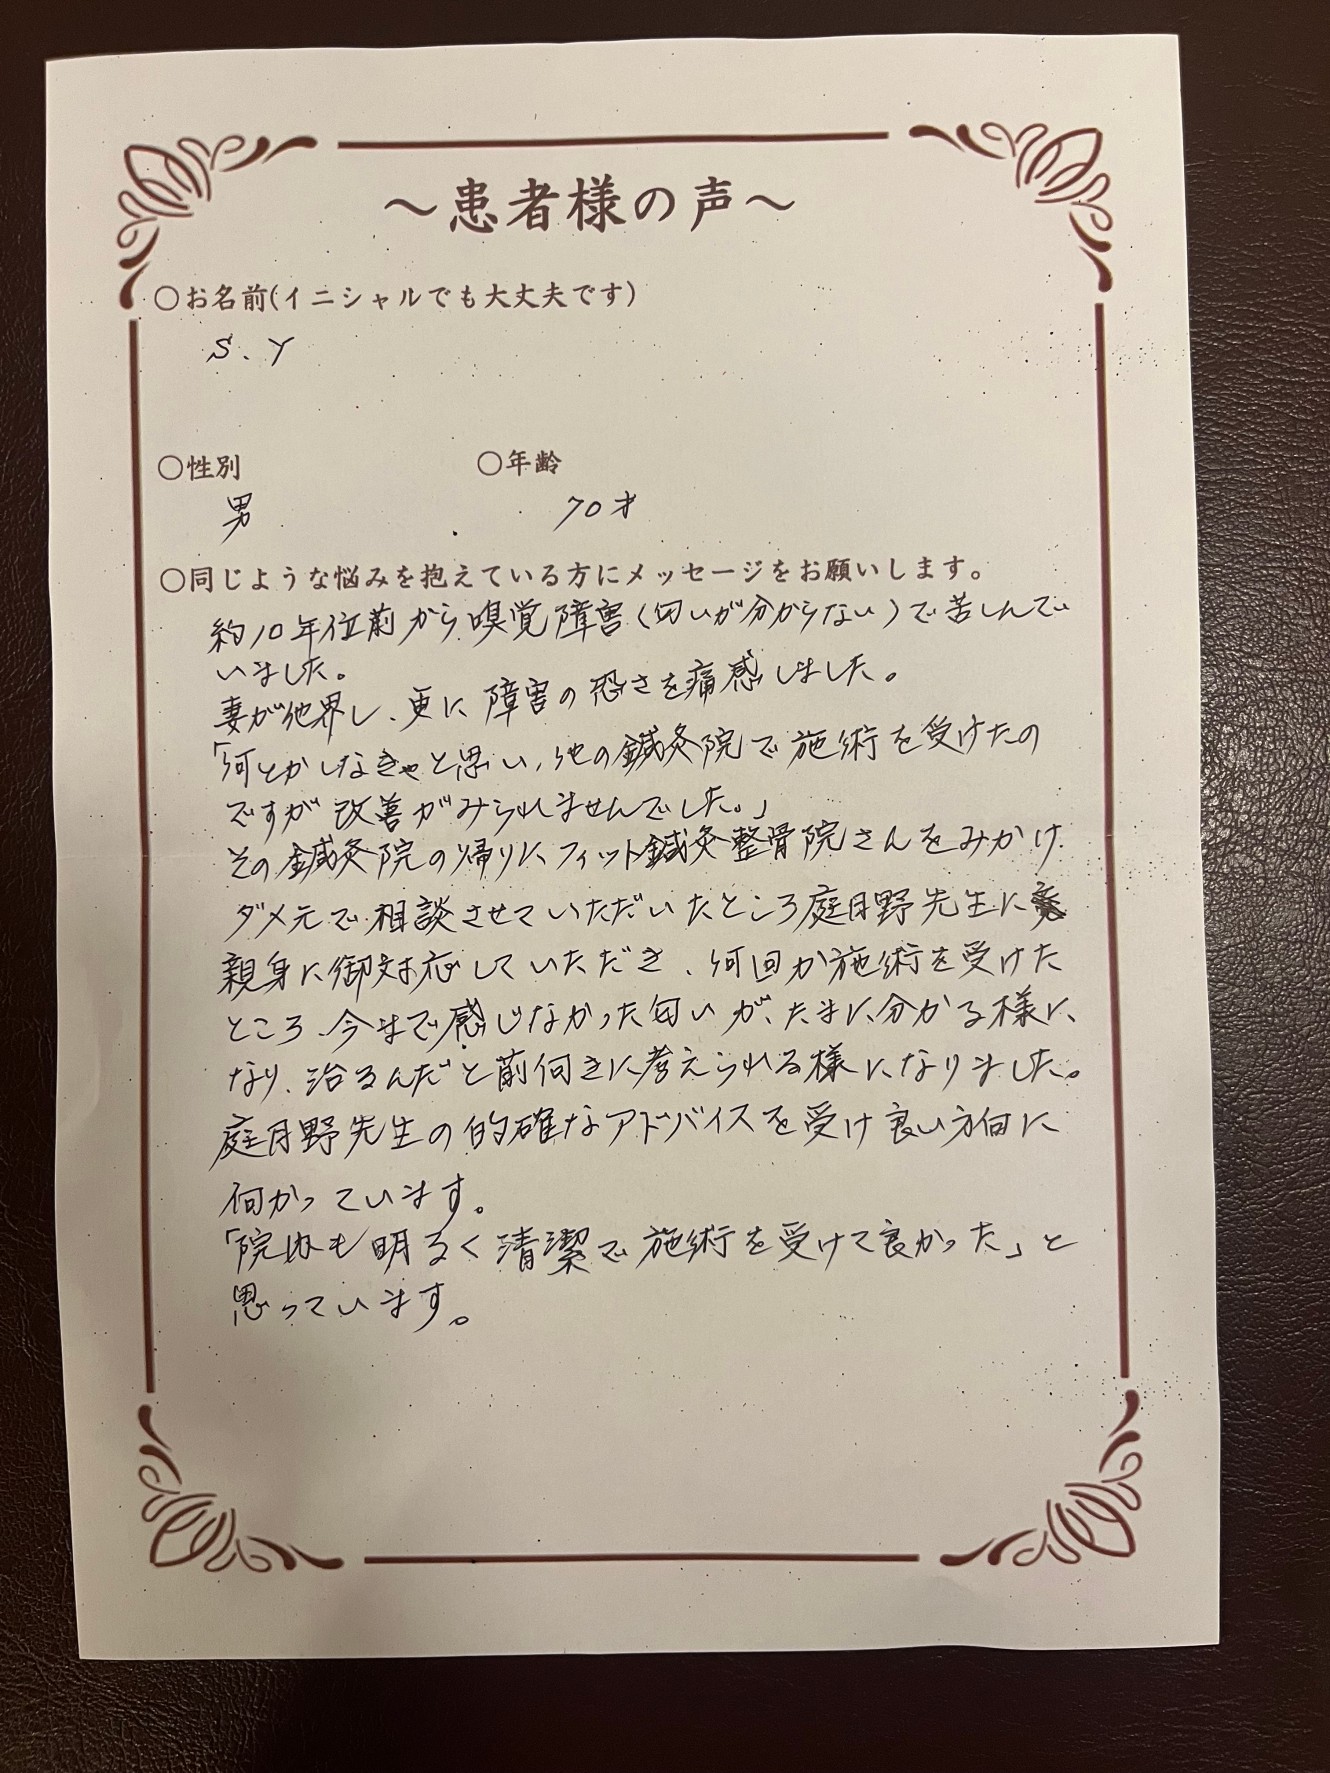 ～患者様の声～
○お名前(イニシャルでも大丈夫です)
S.Y
○性別 ○年齢
男 70才
○同じような悩みを抱えている方にメッセージをお願いします。
約10年位前から嗅覚障害(匂いが分からない)で苦しんで
いました。
妻が他界し、更に障害の恐さを痛感しました。
「何とかしなきゃと思い、他の鍼灸院で施術を受けたの
ですが改善がみられませんでした。」
その鍼灸院の帰りに、フィット鍼灸整骨院さんをみかけ
ダメ元で相談させていただいたところ庭月野先生に
親身に御対応していただき、何回か施術を受けた
ところ、今まで感じなかった匂いが、たまに、分かる様に、
なり、治るんだと前向きに考えられる様になりました。
庭月野先生の的確なアドバイスを受け良い方向に
向かっています。
「院内も明るく清潔で施術を受けて良かった」と
思っています。